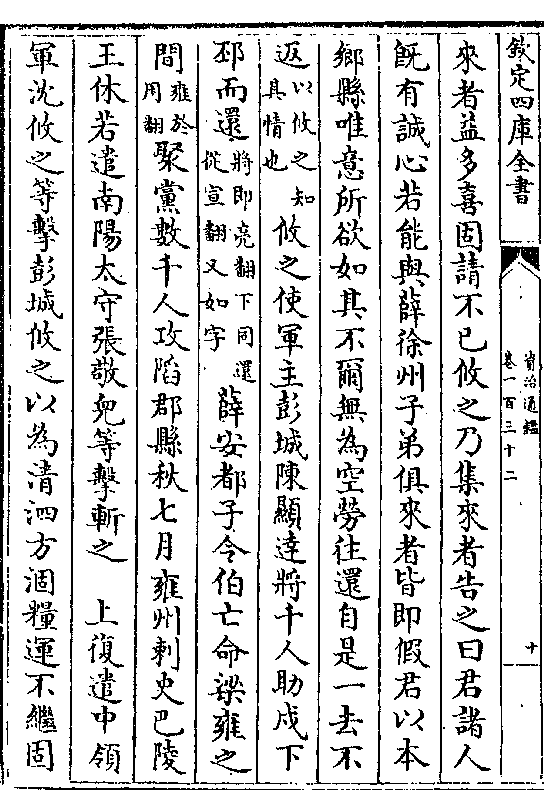 欽定四庫全書
資治通鑑
卷一百三十二
十
來者益多喜固請不已攸之乃集來者告之曰君諸人
旣有誠心若能與薛徐州子弟俱來者皆即假君以本
鄉縣唯意所欲如其不爾無為空勞往還自是一去不
返以攸之知具情也攸之使軍主彭城陳顯達將千人助戍下
邳而還將即亮翻下同還從宣翻又如字薛安都子令伯亡命梁雍之
間雍於用翻聚黨數千人攻陷郡縣秋七月雍州刺史巴陵
王休若遣南陽太守張敬兒等擊斬之 上復遣中領
軍沈攸之等擊彭城攸之以為清泗方涸糧運不繼固